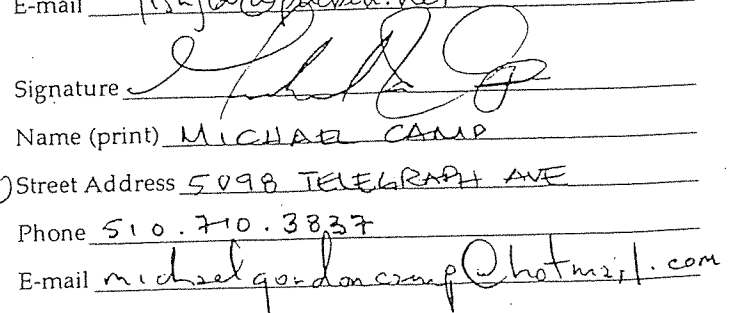 E-mail
Signature
Name (print) MICHAEL CAMP
Street Address 5098 TELEGRAPH AVE
Phone 510.710.3837
E-mail michaelgordoncamp@hotmail.com